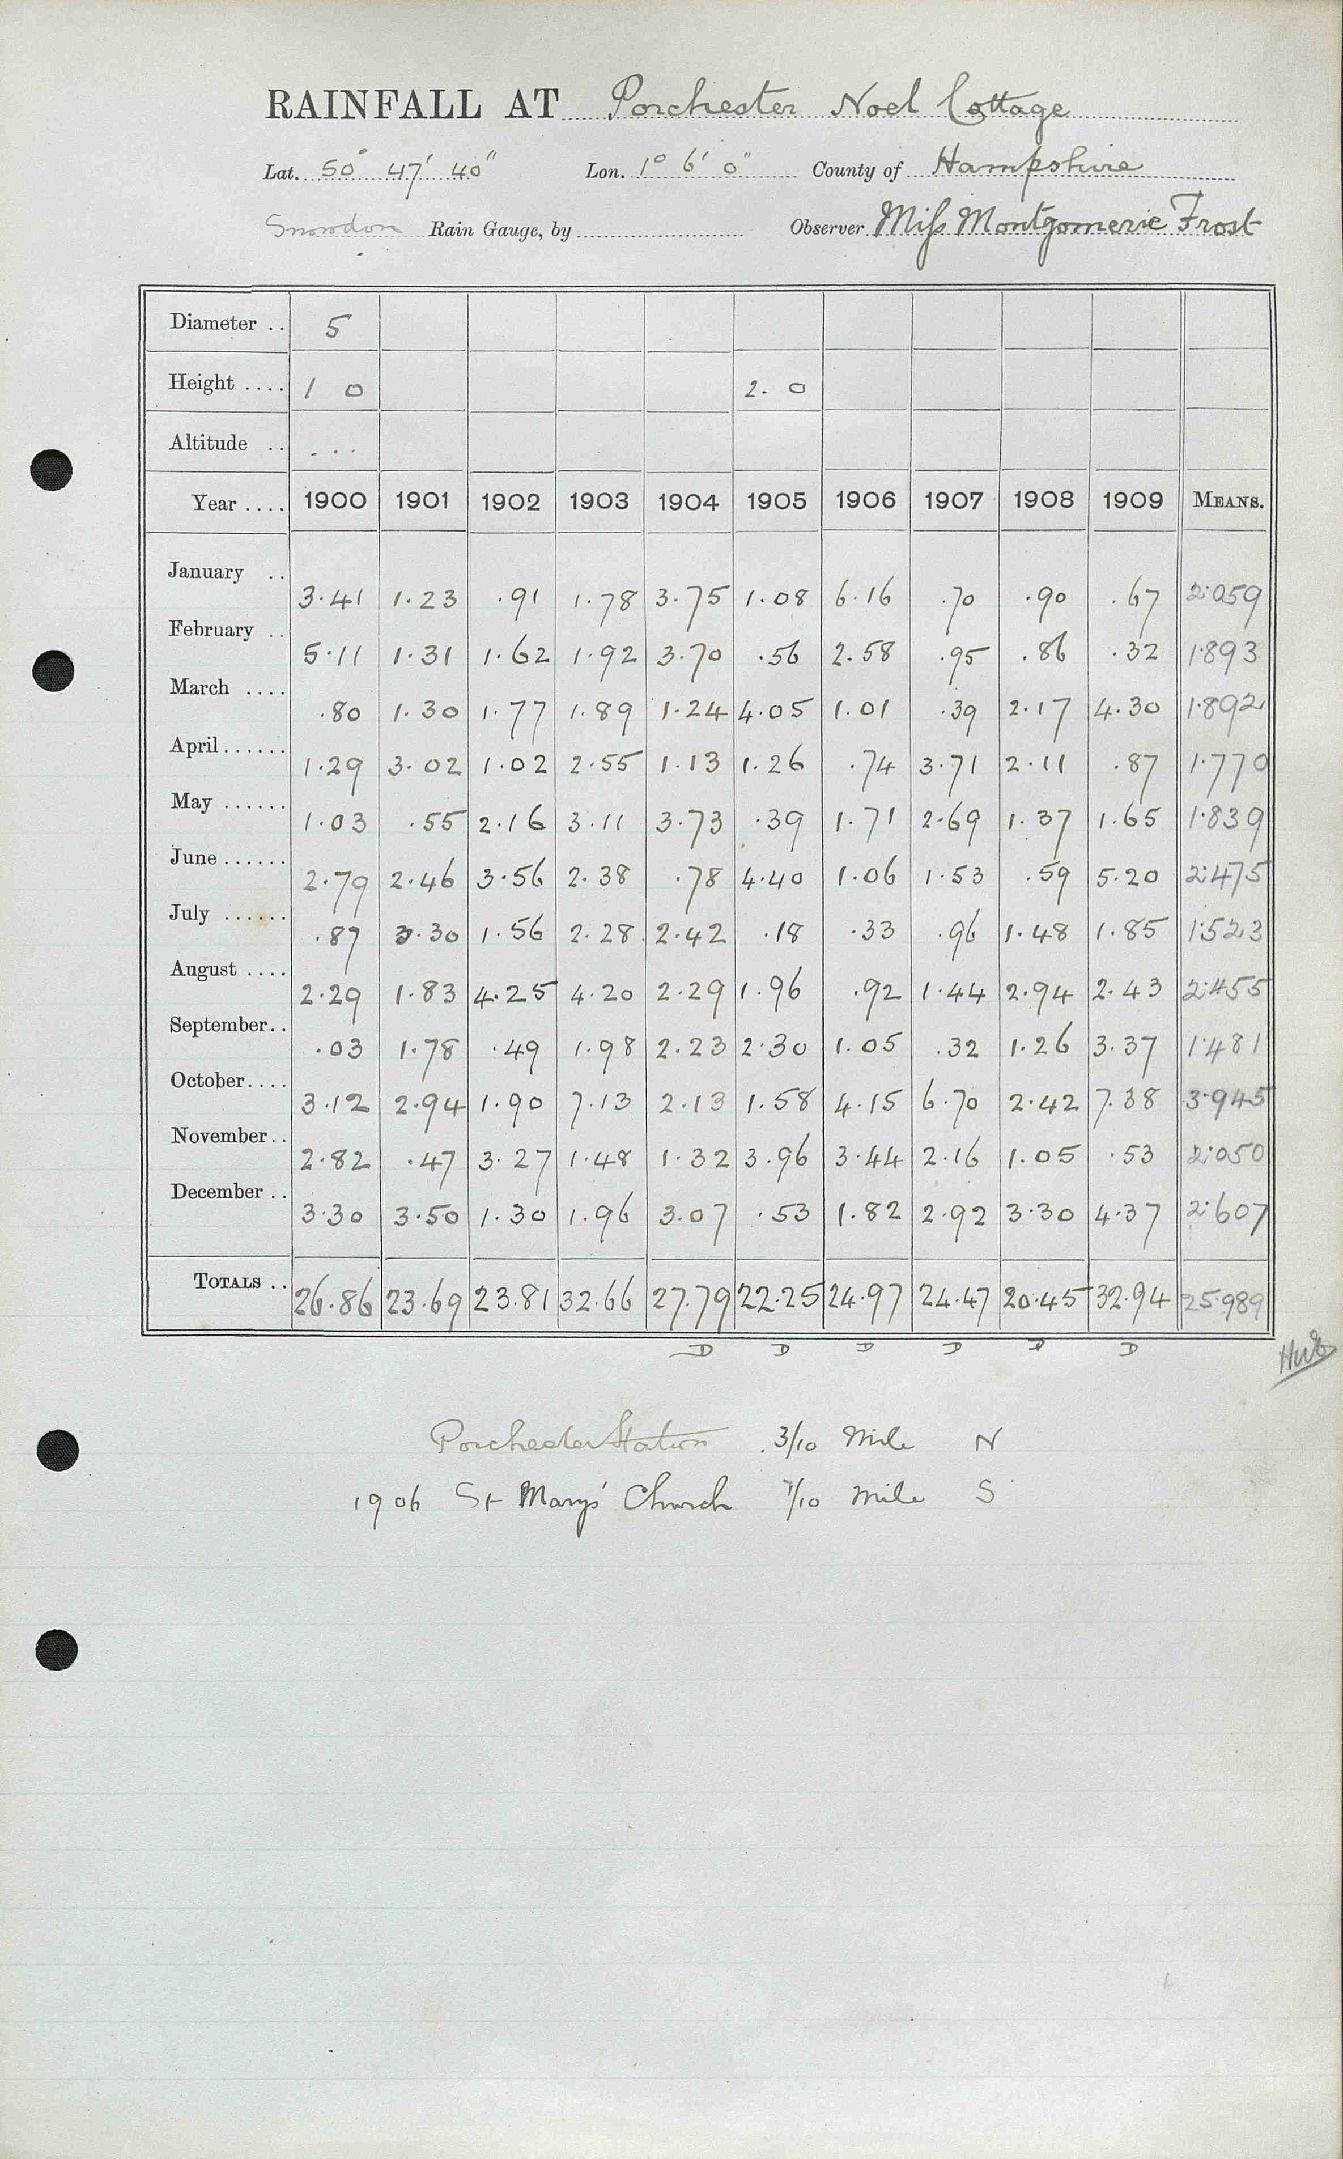 RAINFALL AT Porchester Noel Cottage
Lat. 50° 47' 40" Lon. 1° 6' 0" County of Hampshire
Snowdon Rain Gauge, by Observer Miss Montgomerie Frost
Diameter .. 5
Height .... 1 0 2. 0
Altitude .. ...
Year .... 1900 1901 1902 1903 1904 1905 1906 1907 1908 1909 MEANS.
January .. 3.41 1.23 .91 1.78 3.75 1.08 6.16 .70 .90 .67 2.059
February .. 5.11 1.31 1.62 1.92 3.70 .56 2.58 .95 .86 .32 1.893
March .... .80 1.30 1.77 1.89 1.24 4.05 1.01 .39 2.17 4.30 1.892
April ...... 1.29 3.02 1.02 2.55 1.13 1.26 .74 3.71 2.11 .87 1.770
May ...... 1.03 .55 2.16 3.11 3.73 .39 1.71 2.69 1.37 1.65 1.839
June ...... 2.79 2.46 3.56 2.38 .78 4.40 1.06 1.53 .59 5.20 2.475
July ...... .87 3.30 1.56 2.28 2.42 .18 .33 .96 1.48 1.85 1.523
August .... 2.29 1.83 4.25 4.20 2.29 1.96 .92 1.44 2.94 2.43 2.455
September .. .03 1.78 .49 1.98 2.23 2.30 1.05 .32 1.26 3.37 1.481
October .... 3.12 2.94 1.90 7.13 2.13 1.58 4.15 6.70 2.42 7.38 3.945
November .. 2.82 .47 3.27 1.48 1.32 3.96 3.44 2.16 1.05 .53 2.050
December .. 3.30 3.50 1.30 1.96 3.07 .53 1.82 2.92 3.30 4.37 2.607
TOTALS .. 26.86 23.69 23.81 32.66 27.79 22.25 24.97 24.47 20.45 32.94 25.989
D D D D D D
Porchester Station 3/10 Mile N
1906 St Marys' Church 1/10 mile S